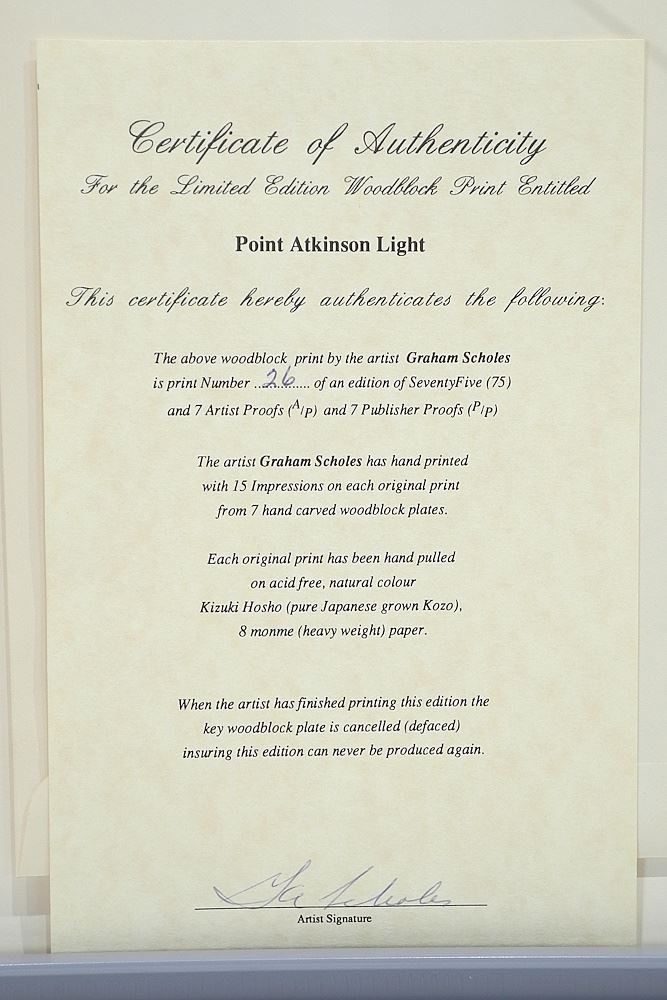 Certificate of Authenticity
For the Limited Edition Woodblock Print Entitled
Point Atkinson Light
This certificate hereby authenticates the following:
The above woodblock print by the artist Graham Scholes
is print Number ..26.... of an edition of SeventyFive (75)
and 7 Artist Proofs (A/P) and 7 Publisher Proofs (P/P)
The artist Graham Scholes has hand printed
with 15 Impressions on each original print
from 7 hand carved woodblock plates.
Each original print has been hand pulled
on acid free, natural colour
Kizuki Hosho (pure Japanese grown Kozo),
8 monme (heavy weight) paper.
When the artist has finished printing this edition the
key woodblock plate is cancelled (defaced)
insuring this edition can never be produced again.
Scholes
Artist Signature